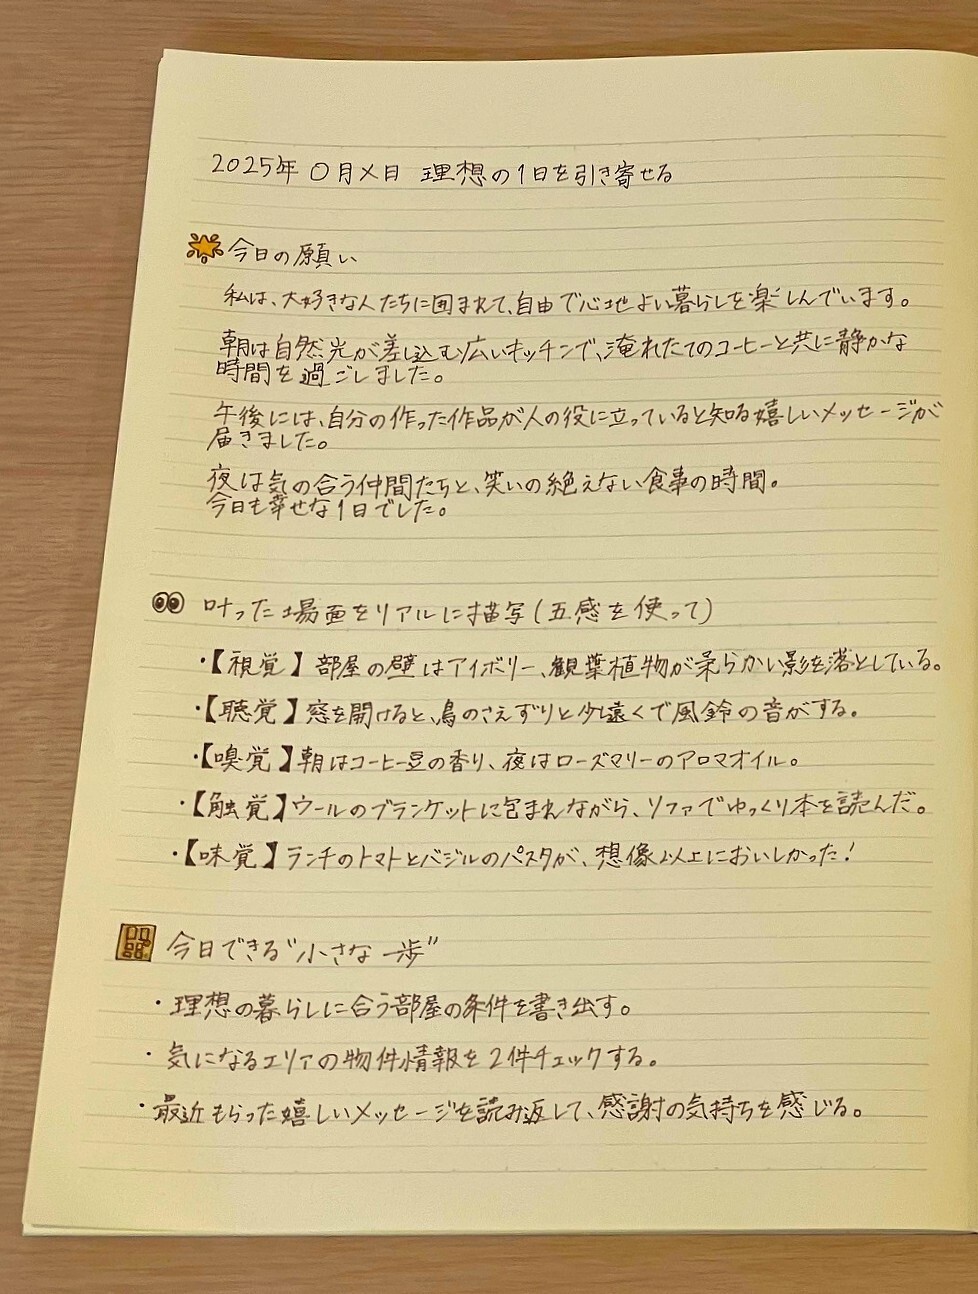 2025年〇月×日 理想の1日を引き寄せる
今日の願い
私は、大好きな人たちに囲まれて、自由で心地よい暮らしを楽しんでいます。
朝は自然光が差し込む広いキッチンで、淹れたてのコーヒーと共に静かな
時間を過ごしました。
午後には、自分の作った作品が人の役に立っていると知る嬉しいメッセージが
届きました。
夜は気の合う仲間たちと、笑いの絶えない食事の時間。
今日も幸せな1日でした。
叶った場面をリアルに描写(五感を使って)
・【視覚】部屋の壁はアイボリー、観葉植物が柔らかい影を落としている。
・【聴覚】窓を開けると、鳥のさえずりと少し遠くで風鈴の音がする。
・【嗅覚】朝はコーヒー豆の香り、夜はローズマリーのアロマオイル。
・【触覚】ウールのブランケットに包まれながら、ソファでゆっくり本を読んだ。
・【味覚】ランチのトマトとバジルのパスタが、想像以上においしかった!
今日できる"小さな一歩"
・理想の暮らしに合う部屋の条件を書き出す。
・気になるエリアの物件情報を2件チェックする。
・最近もらった嬉しいメッセージを読み返して、感謝の気持ちを感じる。